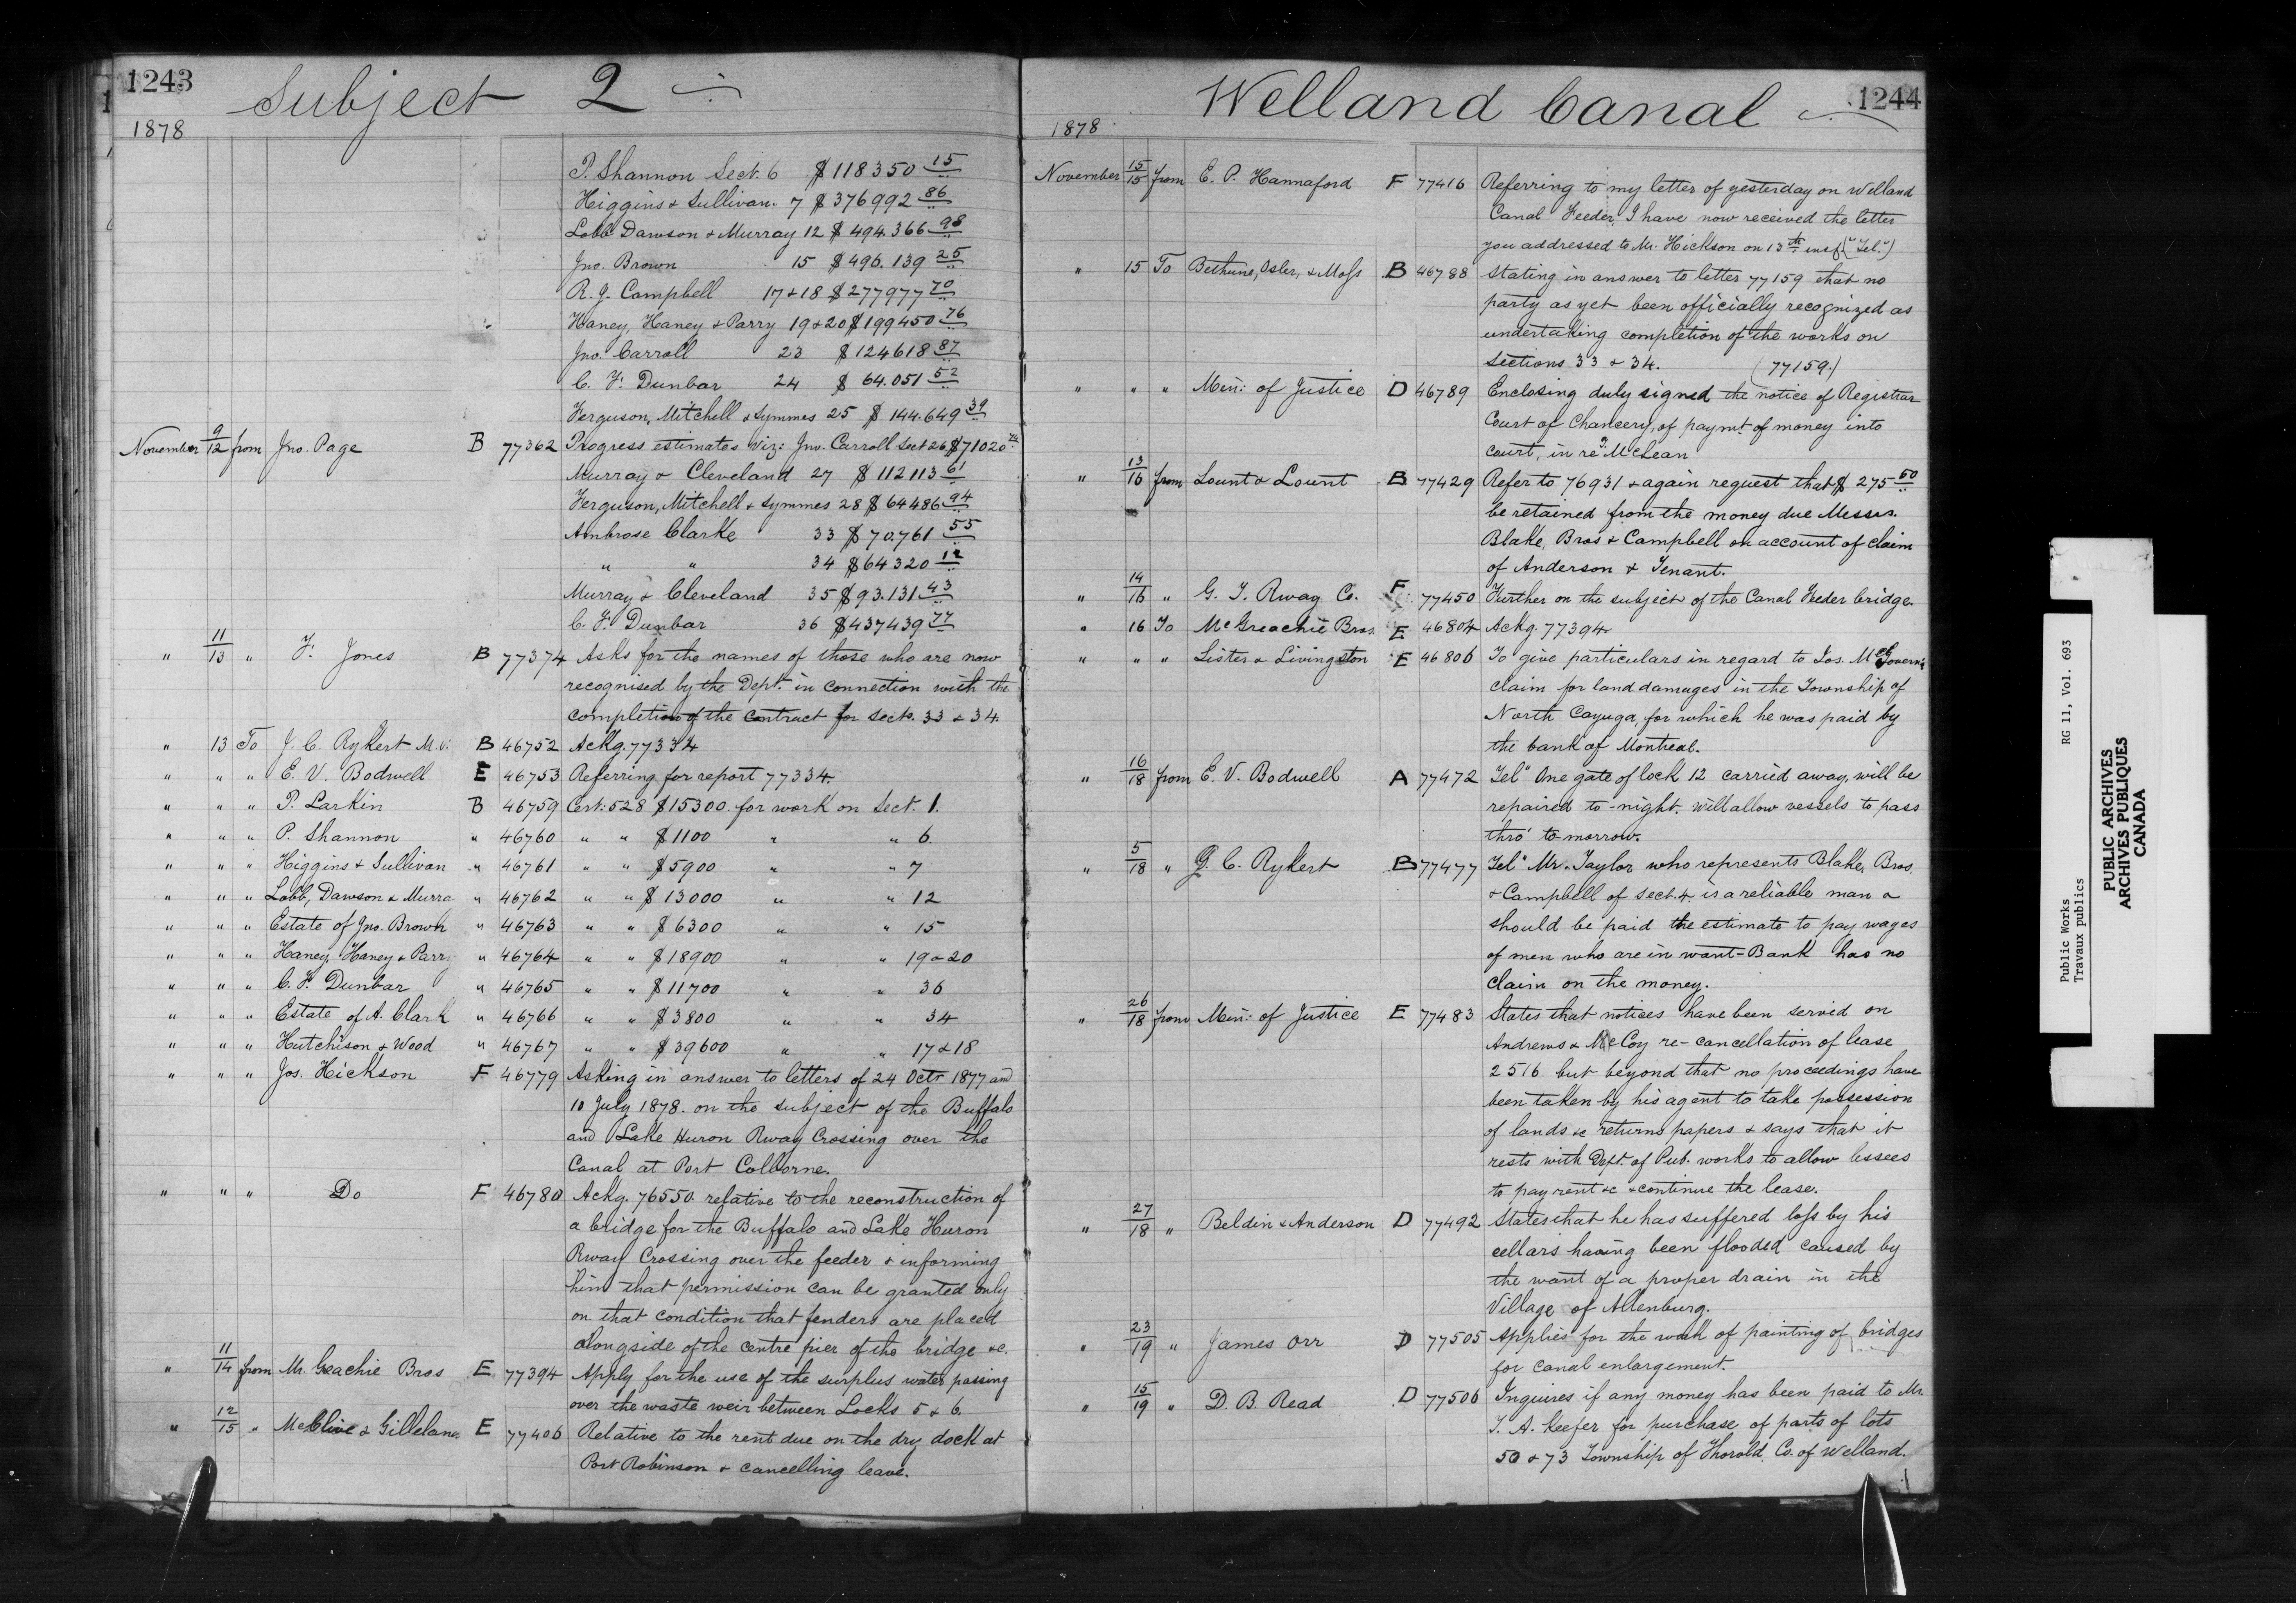 1243
Subject 2
1878
P. Shannon Sect. 6 $118350 15
Higgins & Sullivan. 7 $376992 86
Lobb Dawson & Murray 12 $494.366 98
Jno. Brown 15 $496.139 25
R. J. Campbell 17 & 18 $277977 70
Haney, Haney & Parry 19 & 20 $199450 76
Jno. Carroll 23 $124618 87
C. F. Dunbar 24 $64.051 52
Ferguson, Mitchell & Symmes 25 $144.649 39
November 9/12 from Jno. Page B 77362 Progress estimates Viz: Jno. Carroll Sect 26 $71020
Murray & Cleveland 27 $112113 61
Ferguson, Mitchell & Symmes 28 $64486 94
Ambrose Clarke 33 $70.761 55
" " 34 $64320 12
Murray & Cleveland 35 $93.131 43
C. F. Dunbar 36 $437439 77
" 11/13 " F. Jones B 77374 Asks for the names of those who are now
recognised by the Dept. in connection with the
completion of the contract for sects. 33 & 34.
" 13 To J. C. Rykert M.P. B 46752 Ackg. 77334
" " " E. V. Bodwell E 46753 Referring for report 77334.
" " " P. Larkin B 46759 Cert: 528 $15300. for work on Sect. 1.
" " " P. Shannon " 46760 " " $1100 " " 6
" " " Higgins & Sullivan " 46761 " " $5900 " " 7
" " " Lobb, Dawson & Murra " 46762 " " $13000 " " 12
" " " Estate of Jno. Brown " 46763 " " $6300 " " 15
" " " Haney Haney & Parry " 46764 " " $18900 " " 19 & 20
" " " C. F. Dunbar " 46765 " " $11700 " " 36
" " " Estate of A. Clark " 46766 " " $3800 " " 34
" " " Hutchison & Wood " 46767 " " $39600 " " 17 & 18
" " " Jos. Hickson F 46779 Asking in answer to letters of 24 Octr 1877 and
10 July 1878. on the subject of the Buffalo
and Lake Huron Rway Crossing over the
Canal at Port Colborne.
" " " Do F 46780 Ackg. 76550 relative to the reconstruction of
a bridge for the Buffalo and Lake Huron
Rway Crossing over the feeder & informing
him that permission can be granted only
on that condition that fenders are placed
alongside of the centre pier of the bridge &c.
" 11/14 from Mc Geachie Bros E 77394 Apply for the use of the surplus water passing
over the waste weir between Locks 5 & 6.
" 12/15 " McClive & Gilleland E 77406 Relative to the rent due on the dry dock at
Port Robinson & cancelling leave.
1244
Welland Canal
1878
November 15/15 from E. P. Hannaford F 77416 Referring to my letter of yesterday on Welland
Canal Feeder I have now received the letter
you addressed to Mr. Hickson on 13th inst. ("Tel.")
" 15 To Bethune, Osler, & Moss B 46788 Stating in answer to letter 77159 that no
party as yet been officially recognized as
undertaking completion of the works on
sections 33 & 34. (77159.)
" " " Min: of Justice D 46789 Enclosing duly signed the notice of Registrar
Court of Chancery, of paymt. of money into
court, in re McLean
" 13/16 from Lount & Lount B 77429 Refer to 76931 & again request that $275 50
be retained from the money due Messrs.
Blake, Bros & Campbell on account of claim
of Anderson & Tenant.
" 14/16 " G. T. Rway Co. F 77450 Further on the subject of the Canal Feeder bridge.
" 16 To McGreachie Bros. E 46804 Ackg. 77394
" " " Lister & Livingston E 46806 To give particulars in regard to Jos. McGovern's
claim for land damages in the Township of
North Cayuga, for which he was paid by
the bank of Montreal.
" 16/18 from E. V. Bodwell A 77472 Tel" One gate of lock 12 carried away, will be
repaired to-night. will allow vessels to pass
thro' to-morrow.
" 5/18 " J. C. Rykert B 77477 Tel" Mr. Taylor who represents Blake, Bros.
& Campbell of sect. 4. is a reliable man &
should be paid the estimate to pay wages
of men who are in want - Bank has no
claim on the money.
" 26/18 from Min: of Justice E 77483 States that notices have been servid on
Andrews & McCoy re-cancellation of lease
2516 but beyond that no proceedings have
been taken by his agent to take possession
of lands &c returns papers & says that it
rests with Dept. of Pub. works to allow lessees
to pay rent &c & continue the lease.
" 27/18 " Beldin & Anderson D 77492 States that he has suffered loss by his
cellars having been flooded caused by
the want of a proper drain in the
Village of Allenburg.
" 23/19 " James Orr D 77505 Applies for the work of painting of bridges
for canal enlargement.
" 15/19 " D. B. Read D 77506 Inquires if any money has been paid to Mr.
T. A. Keefer for purchase of parts of lots
50 & 73 Township of Thorold Co. of Welland.
Public Works RG 11, Vol. 693
Travaux publics
PUBLIC ARCHIVES
ARCHIVES PUBLIQUES
CANADA